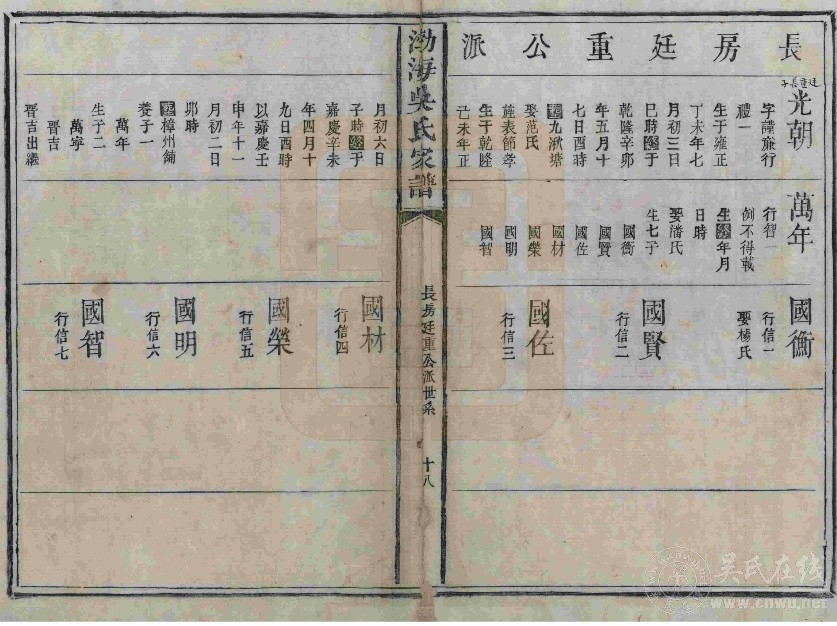 長房廷重公派
廷重長子
光朝
字謹㢘行
禮一
生于雍正
丁未年七
月初三日
巳時歿于
乾隆辛卯
年五月十
七日酉時
葬九湫塘
娶范氏
旌表節孝
生于乾隆
己未年正
月初六日
子時歿于
嘉慶辛未
年四月十
九日酉時
以嘉慶壬
申年十一
月初二日
卯時
葬樟州舖
養子一
萬年
生子二
萬寧
晋吉
晋吉出繼
萬年
行智一
例不得載
生歿年月
日時
娶潘氏
生七子
國衡
國賢
國佐
國材
國榮
國明
國智
國衡
行信一
娶楊氏
國賢
行信二
國佐
行信三
國材
行信四
國榮
行信五
國明
行信六
國智
行信七
渤海吳氏家譜
長房廷重公派世系
十八
吴氏在线
www.cnwu.net